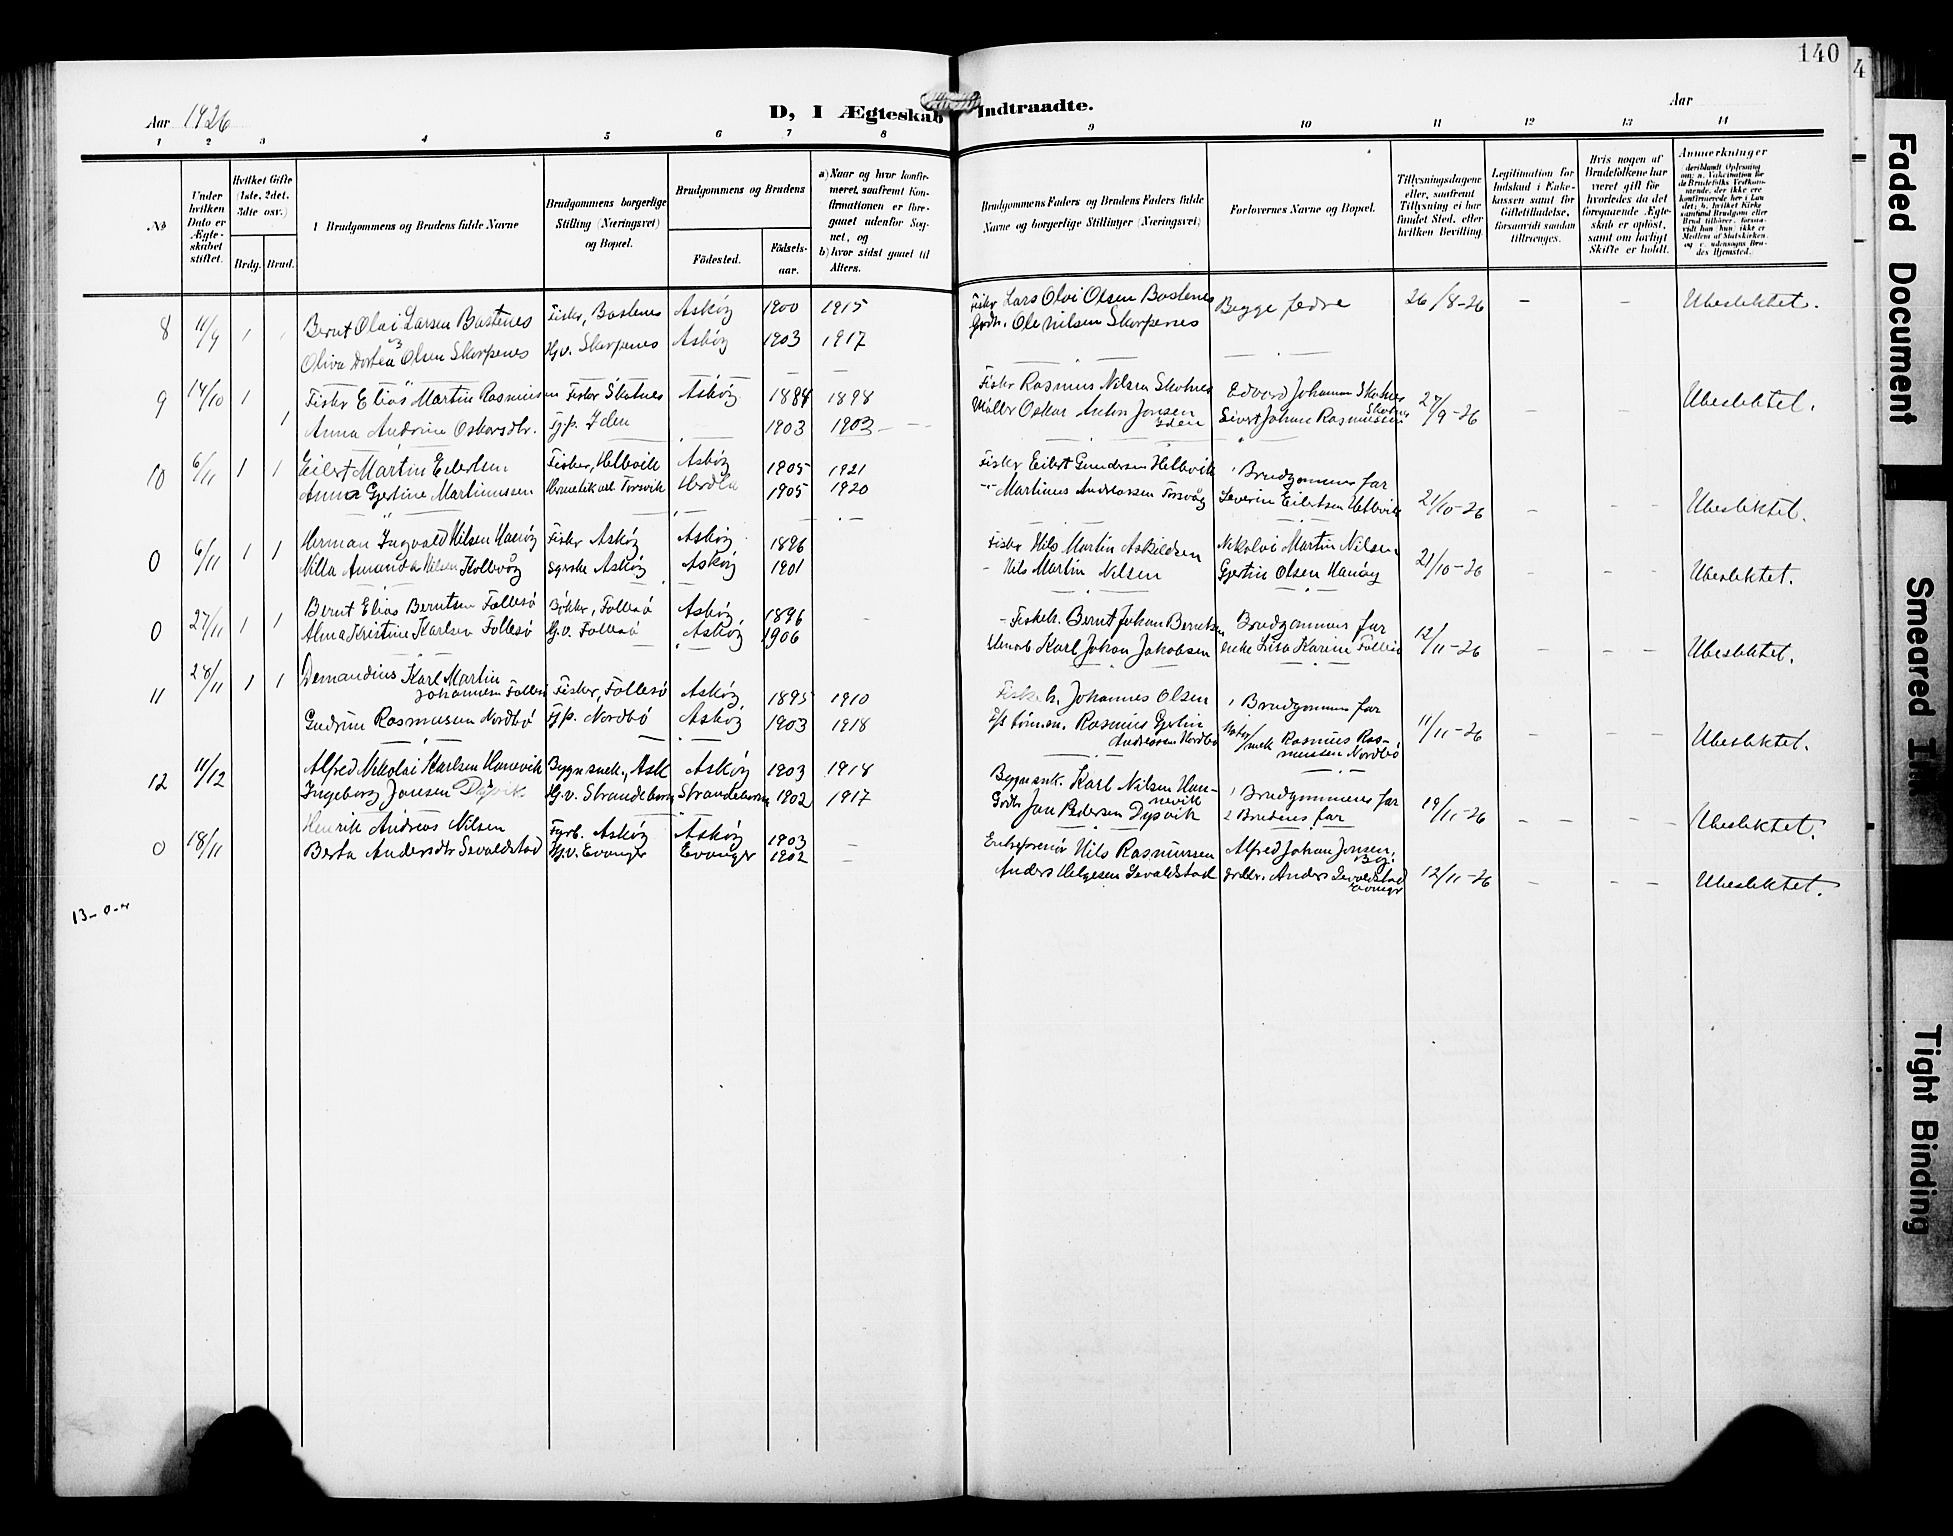 140
4
Aar 1926
D, I Ægteskab Indtraadte.
Aar
1 2 3 4 5 6 7 8 9 10 11 12 13 14
№
Under hvilken Dato er Ægteskabet stiftet.
Hvilket Gifte (1ste, 2det, 3die osv.)
Brdg. Brud.
1 Brudgommens og Brudens fulde Navne
Brudgommens borgerlige Stilling (Næringsvei) og Bopæl.
Brudgommens og Brudens
Födested.
Födsels-aar.
a) Naar og hvor konfirmeret, saafremt Konfirmationen er foregaaet udenfor Sognet, og
b) hvor sidst gaaet til Alters.
Brudgommens Faders og Brudens Faders fulde Navne og borgerlige Stillinger (Næringsvei)
Forlovernes Navne og Bopæl.
Tillysningsdagene eller, saafremt Tillysning ei har fundet Sted, efter hvilken Bevilling.
Legitimation for Indskud i Enkekassen samt for Giftetilladelse, forsaavidt saadan tiltrænges.
Hvis nogen af Brudefolkene har været gift før hvorledes da det foregaaende Ægteskab er opløst, samt om lovligt Skifte er holdt.
Anmerkninger
8 11/9 1 1 Bernt Olai Larsen Bastenes Fisker, Bastenes Askøy 1900 1915 Fisker Lars Olai Olsen Bastenes Begge fedre 26/8-26 – – Ubeslektet.
Oliva Dortea Olsen Skarpenes Hv. Skarpenes Askøy 1903 1917 Gdbr. Ole Nilsen Skarpenes
9 14/10 1 Fisker Elias Martin Rasmussen Fisker Skatnes Askøy 1884 1898 Fisker Rasmus Nilsen Skotnes Edvard Johannes Skotnes 27/9-26 Ubeslektet.
1 Anna Andrine Oskarsdtr. Tjp. Iden 1903 1903 Møller Oskar Anton Jonsen Iden Sivert Johan Rasmussen Skotnes
10 6/11 1 1 Eilert Martin Eilertsen Fisker, Hetlevik Askøy 1905 1921 Fisker Eilert Gundersen Hetlevik 1 Brudgommens far 21/10-26 – – – Ubeslektet.
Anna Gjertine Martinussen Hermetikarb Torsvik Herdla 1905 1920 Martinus Andreassen Torsvåg Severin Eilertsen Hetlevik
0 6/11 1 1 Herman Ingvald Nilsen Hanøy Fisker Askøy Askøy 1896 Fisker Nils Martin Askildsen Nikolai Martin Nilsen 21/10-26 – – – Ubeslektet.
Villa Amanda Nilsen Kollevåg Syerske Askøy Askøy 1901 – Nils Martin Nilsen Gjertin Olsen Hanøy
0 27/11 1 1 Bernt Elias Berntsen Follesø Bøkker, Follesø Askøy 1896 – Fiskeh. Bernt Johan Berntsen Brudgommens far 12/11-26 – – – Ubeslektet.
Alma Kristine Karlsen Follesø Hv. Follesø Askøy 1906 Karl Johan Jakobsen enke Lisa Karine Follesø
11 28/11 1 1 Demandius Karl Martin Johannesen Follesø Fisker, Follesø Askøy 1895 1910 Fiskeh. Johannes Olsen 1 Brudgommens far 11/11-26 – – – Ubeslektet.
Gudrun Rasmussen Nordbø Tjp. Nordbø Askøy 1903 1918 Rasmus Gjertin Andreassen Nordbø Rasmus Rasmussen Nordbø
12 11/12 Alfred Nikolai Karlsen Hanevik Bygnsnek., Ask Askøy 1903 1918 Bygnsnk. Karl Nilsen Hannevik 1 Brudgommens far 19/11-26 – – – – Ubeslektet.
Ingeborg Jonsen Dysvik Hv. Strandebarm Strandebarm 1902 1917 Gdbr Jon Pedersen Dysvik 2 Brudens far
0 18/11 Henrik Andreas Nilsen Fyrb. Askøy Askøy 1903 – Entreprenør Nils Rasmussen Alfred Johan Jonsen, 12/11-26 – – – Ubeslektet.
Berta Andersdtr Sevaldstad Hv. Evanger Evanger 1902 – Anders Helgesen Sevaldstad Gdbr. Anders Sevaldstad Evanger
Faded Document
Smeared Ink
Tight Binding